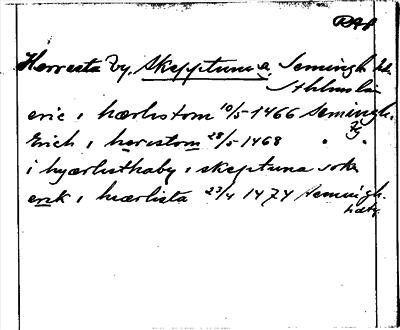 RAP
Herresta by, Skepptuna, Semingh. hd.
Sthlms län
eric i hærlistom 10/5 1466 Semingh.
Erich i herestom 28/5 1468 " "
i hyærlisthaby i skeptuna sokn
erik i hærlista 23/4 1474 Semingh.